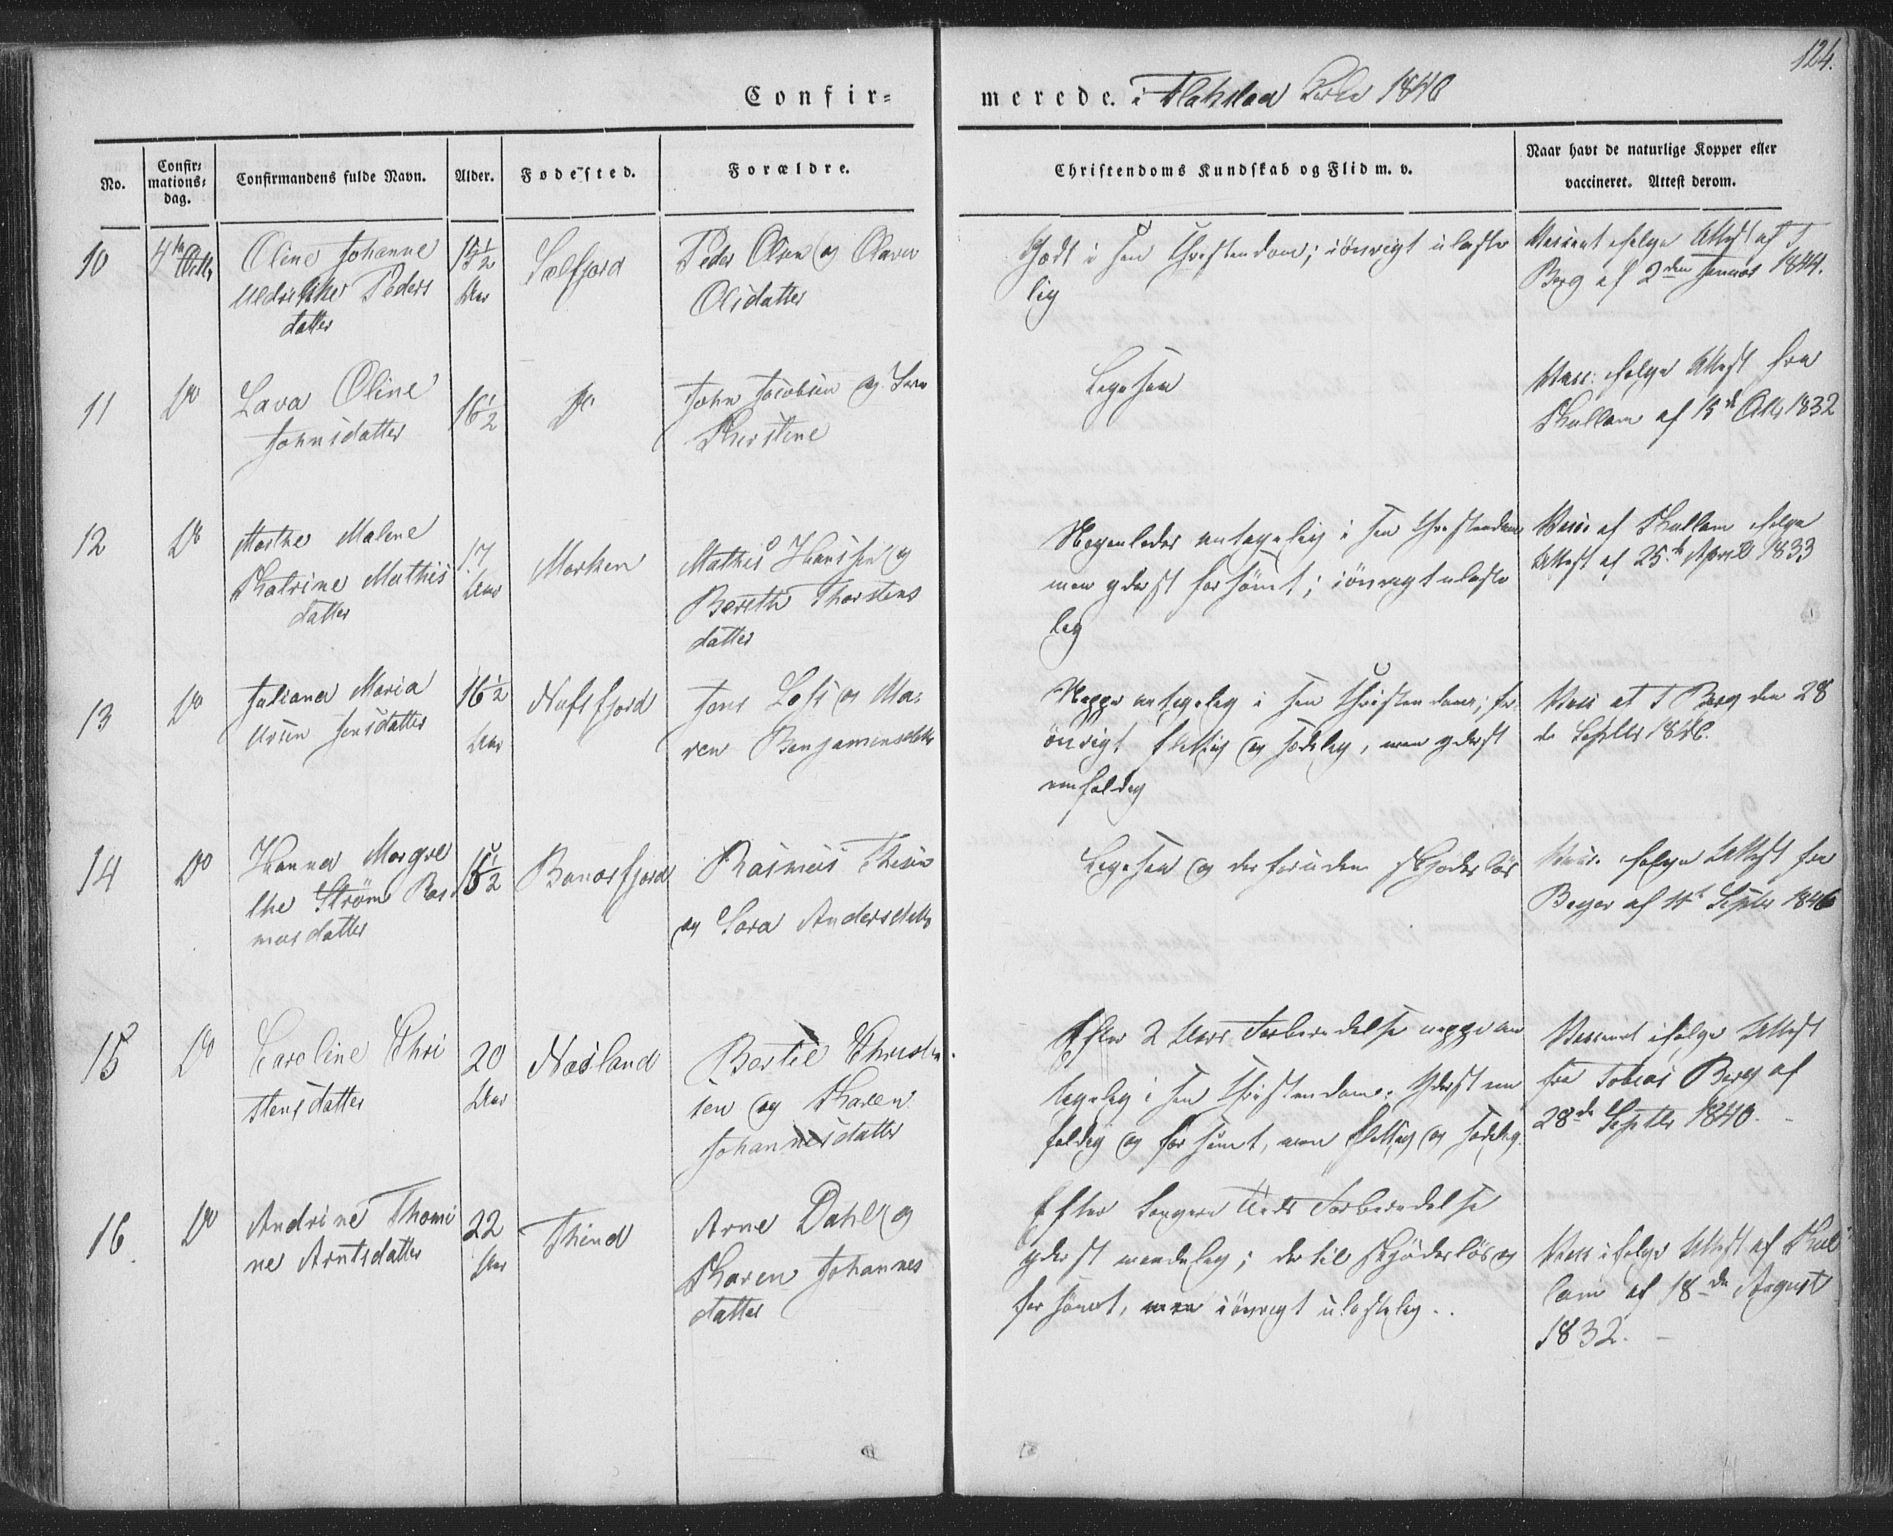 124.
Confir=
merede. i Flakstad Kirke 1846
No.
Confir=
mations=
dag.
Confirmandens fulde Navn.
Alder.
Fødested.
Forældre.
Christendoms Kundskab og Flid m. v.
Naar havt de naturlige Kopper eller
vaccineret. Attest derom.
10
4de Octbr
Oline Johanne
Uldrikke Peders
datter
15 1/2
Aar
Sælfjord
Peder Olsen og Olava
Olsdatter
Godt i sin Christendom; iøvrigt ulaste
lig
Vaccinert ifølge Attest af T
Berg af 2den Januar 1844.
11
Do
Lava Oline
Johnsdatter
16 1/2
Do
John Jacobsen og
Kirstine
Ligesaa
Vacc. ifølge Attest fra
Kullam af 15de Octbr 1832
12
Do
Marthe Malene
Katrine Mathis
datter
17
Aar
Marken
Mathis Hanssen og
Bereth Thorstens
datter
Nogenledes antagelig i sin Christendom
men yderst forsømt; iøvrigt ulaste
lig
Vacc. af Kullam ifølge
Attest af 25de April 1833
13
Do
Juliana Maria
Ursin Jensdatter
16 1/2
Aar
Nufsfjord
Jens Lofs og Ma=
ren Benjaminsdtr
Neppe antagelig i sin Christendom; for=
øvrigt flittig og sædelig, men yderst
enfoldig
Vacc af T Berg den 28
de Septbr 1846.
14
Do
Hanna Margre
the Strøm Ras
musdatter
15 1/2
Bonasfjord
Rasmus
og Sara Andersdatter
Ligesaa og desforuden skjødesløs
Vacc. ifølge Attest fra
Beyer af Septbr 1846
15
Do
Caroline Chri
stensdatter
20
Aar
Næsland
Bertil Christen
sen og Karen
Johannesdatter
Efter 2 Aars Forberedelse neppe an
tagelig i sin Christendom. Yderst en
foldig og forsømt, men flittig og sædelig.
Vaccinert ifølge Attest
fra Tobias Berg af
28de Septbr 1840. -
16
Do
Andrine Thomi
ne Arntsdatter
22
Aar
Thind
Arne Dahl og
Karen Johannes
datter
Efter længere Tids Forberedelse
yderst maadelig; dertil skjødesløs og
forsømt, men iøvrigt ulastelig.
Vacc ifølge Attest af Kul
lam af 18de August
1832. -